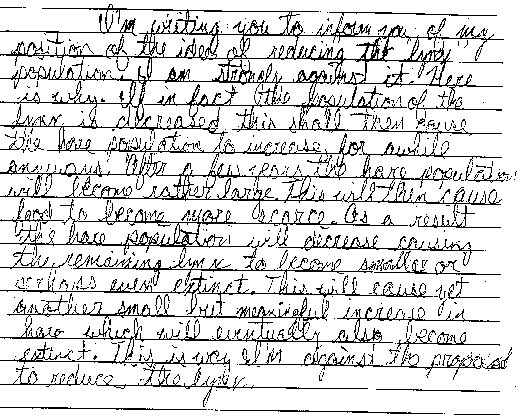 I'm writing you to inform you of my
position of the idea of reducing the lynx
population. I am strongly against it. Here
is why. If in fact the population of the
lynx is decreased this shall then cause
the hare population to increase for awhile
anyways. After a few years the hare population
will become rather large. This will then cause
food to become more scarce. As a result
the hare population will decrease causing
the remaining lynx to become smaller or
perhaps even extinct. This will cause yet
another small but meaningful increase in
hare which will eventually also become
extinct. This is why I'm against the proposal
to reduce the lynx.